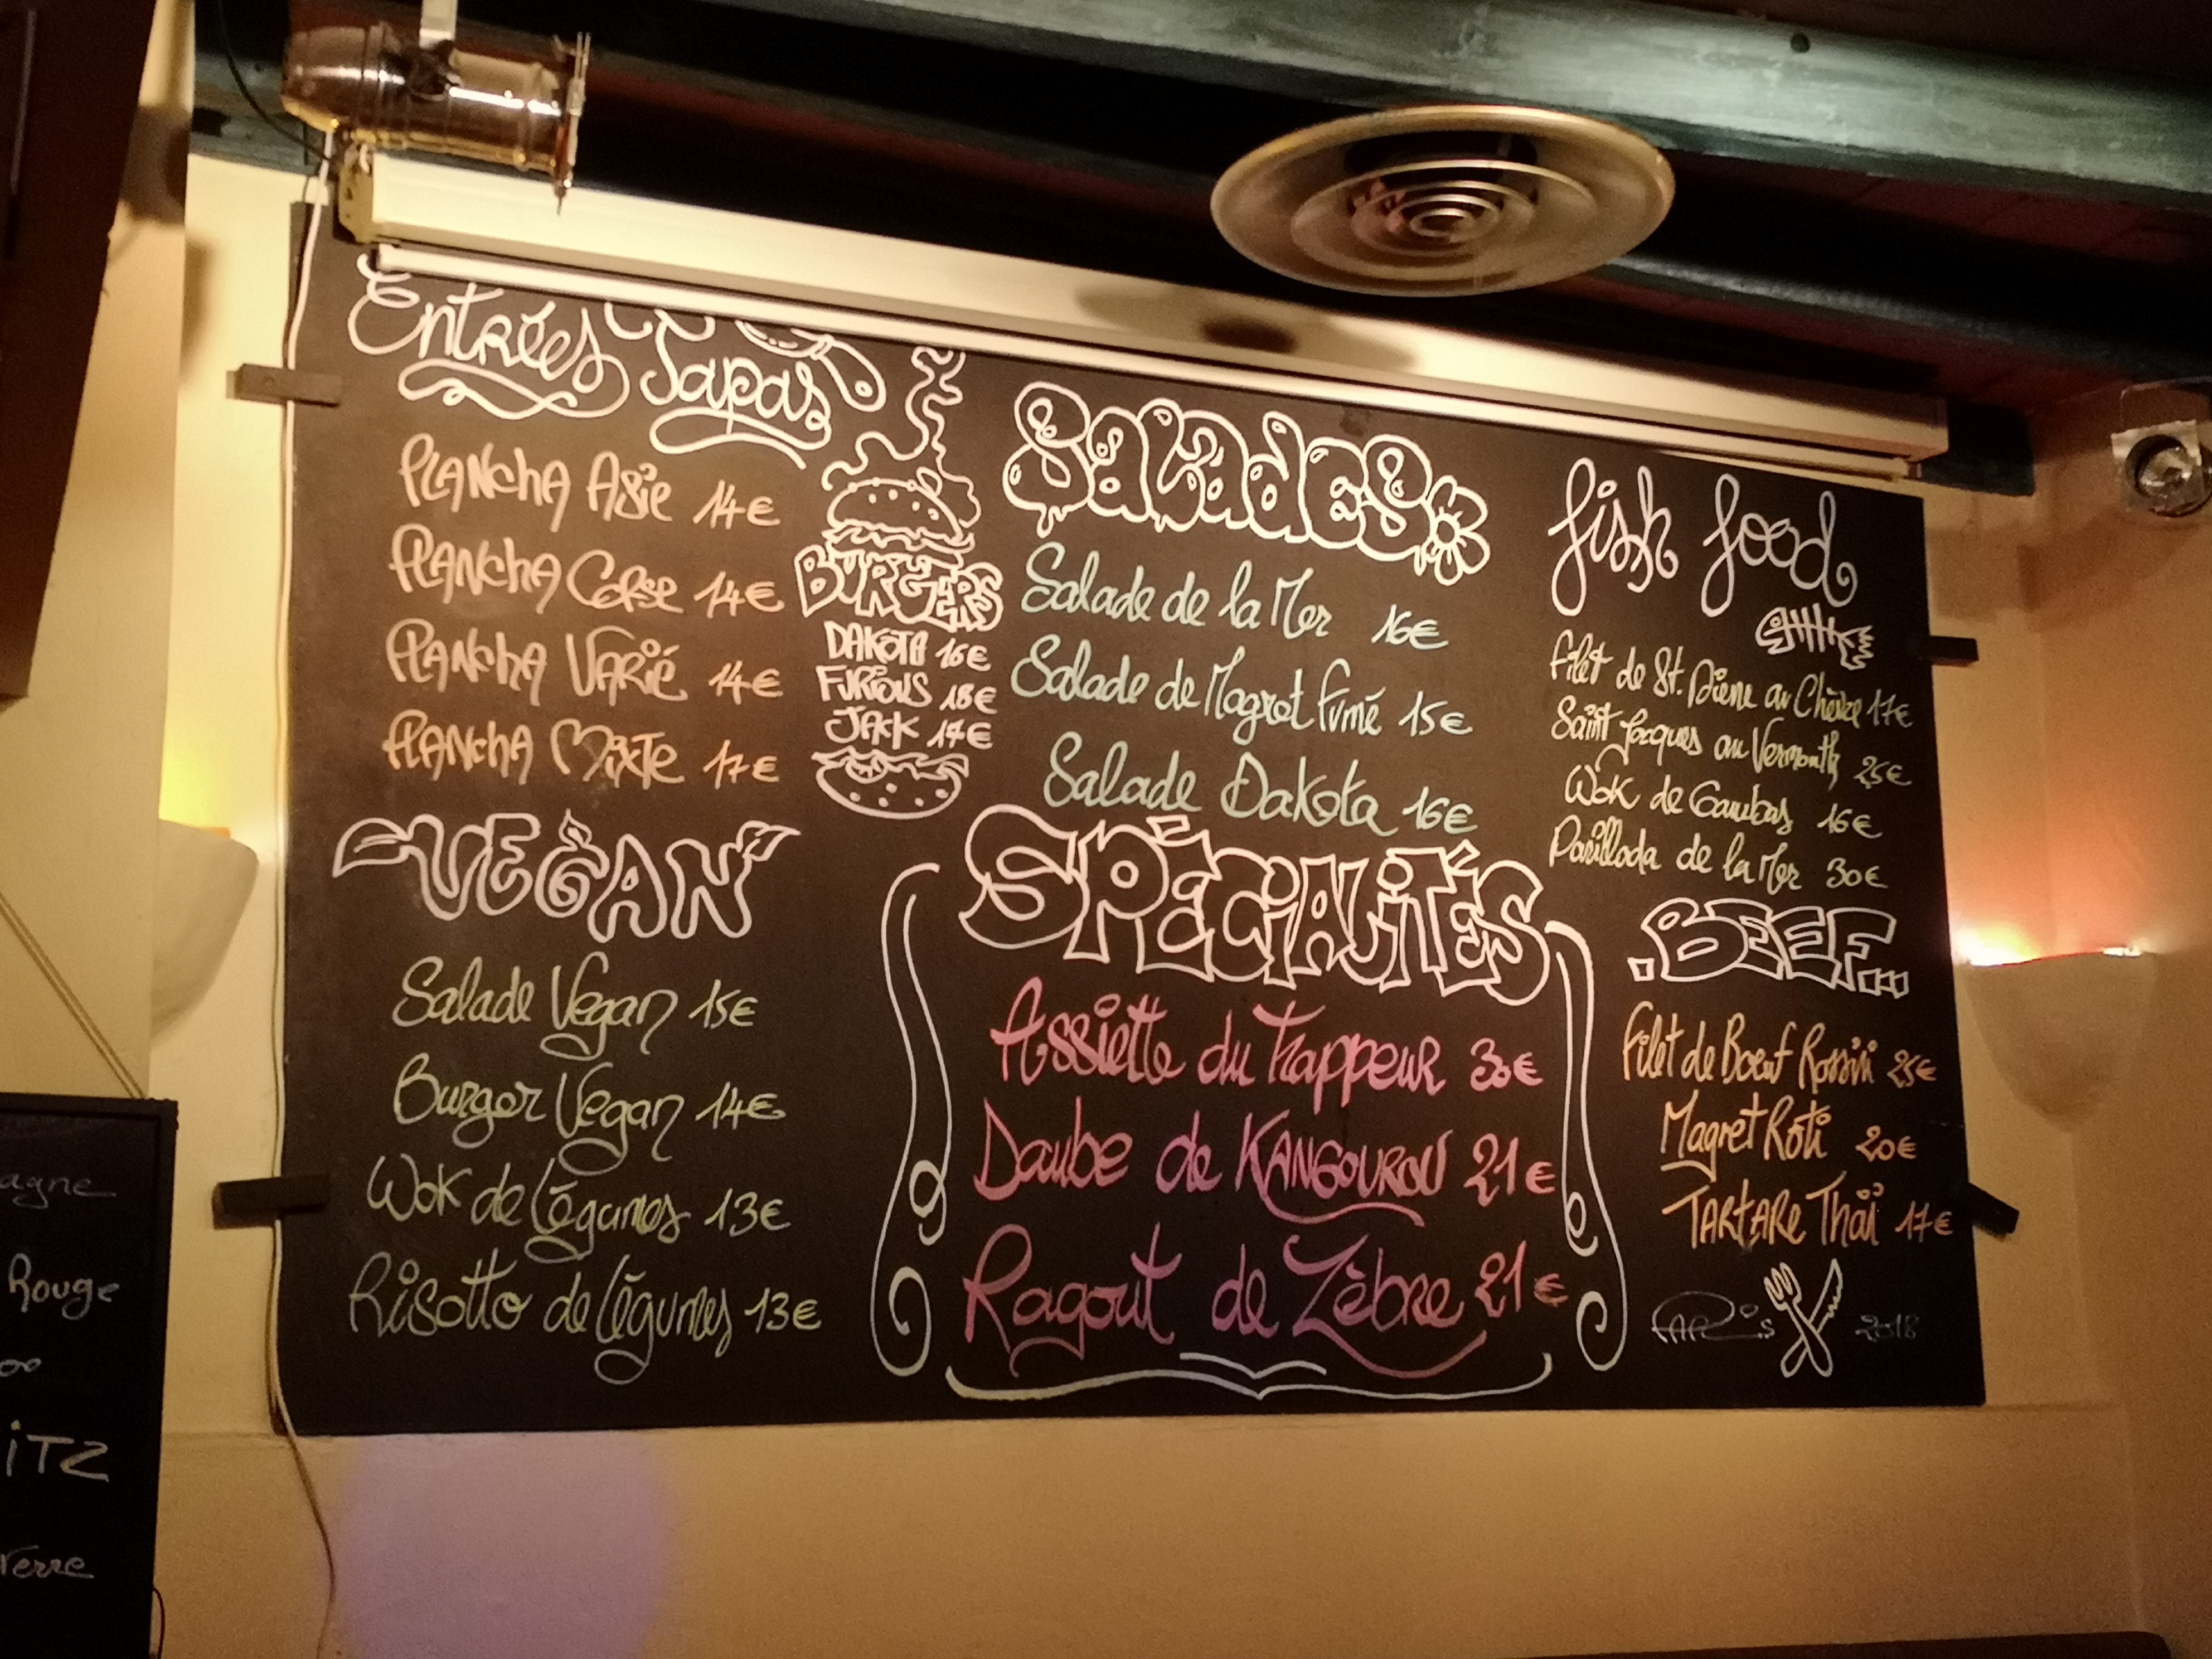 Entrées Tapas
PLANchA Asie 14€
PLANchA Corse 14€
PLANchA VARié 14€
PLANchA MixTe 17€
BURGERS
DAKOTA 16€
FURIOUS 18€
JACK 17€
VEGAN
Salade Vegan 15€
Burger Vegan 14€
Wok de Légumes 13€
Risotto de Légumes 13€
SaladES
Salade de la Mer 16€
Salade de Magret Fumé 15€
Salade Dakota 16€
SPÉCiALiTÉS
Assiette du Trappeur 30€
Daube de KANGOUROU 21€
Ragout de Zèbre 21€
fish food
Filet de St. Pierre au Chèvre 17€
Saint Jacques au Vermouth 25€
Wok de Gambas 16€
Parillada de la Mer 30€
.BEEF...
Filet de Boeuf Rossini 25€
Magret Rôti 20€
TARTARE Thaï 17€
2018
agne
Rouge
iTZ
Verre